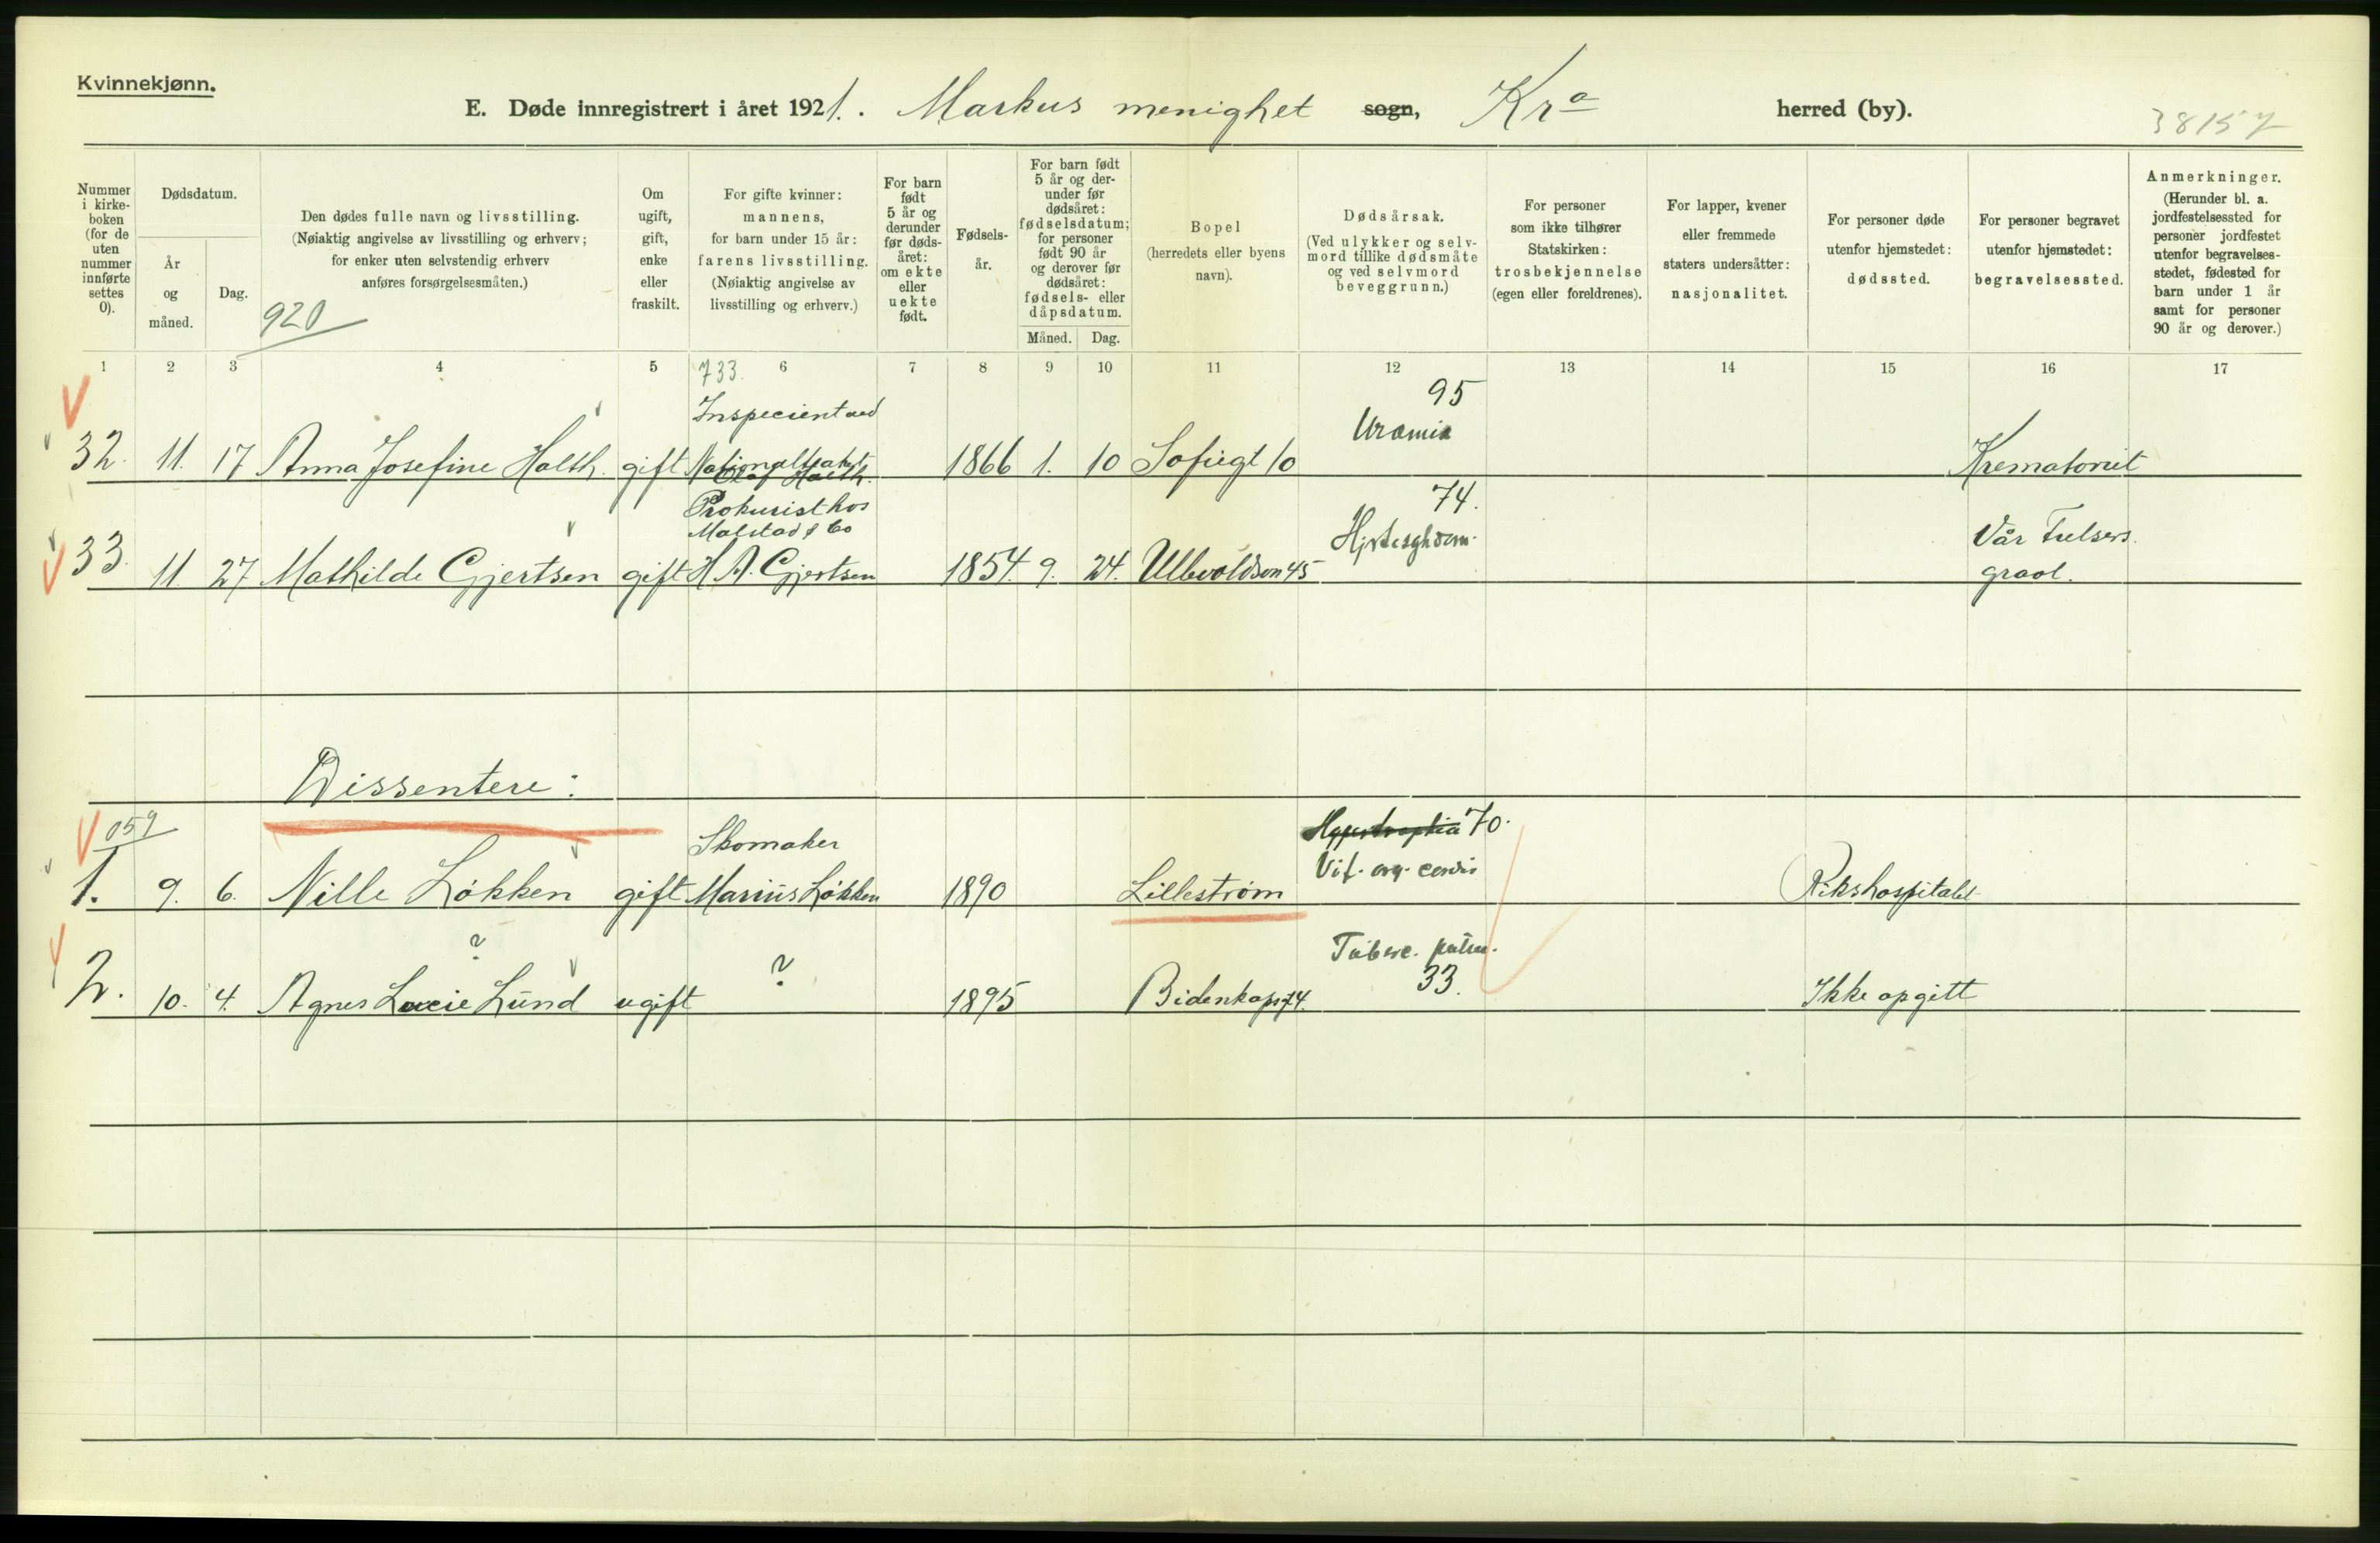 Kvinnekjønn.
E. Døde innregistrert i året 1921. Markus menighet sogn, Kra herred (by).
38157
Nummer i kirke-boken (for de uten nummer innførte settes 0).
Dødsdatum.
År og måned.
Dag.
Den dødes fulle navn og livsstilling.
(Nøiaktig angivelse av livsstilling og erhverv;
for enker uten selvstendig erhverv
anføres forsørgelsesmåten.)
920
Om ugift, gift, enke eller fraskilt.
For gifte kvinner:
mannens,
for barn under 15 år:
farens livsstilling.
(Nøiaktig angivelse av
livsstilling og erhverv.)
For barn født 5 år og derunder før døds-året: om ekte eller uekte født.
Fødsels-år.
For barn født 5 år og der-under før dødsåret: fødselsdatum; for personer født 90 år og derover før dødsåret: fødsels- eller dåpsdatum.
Måned. Dag.
Bopel
(herredets eller byens
navn).
Dødsårsak.
(Ved ulykker og selv-
mord tillike dødsmåte
og ved selvmord
beveggrunn.)
For personer
som ikke tilhører
Statskirken:
trosbekjennelse
(egen eller foreldrenes).
For lapper, kvener
eller fremmede
staters undersåtter:
nasjonalitet.
For personer døde
utenfor hjemstedet:
dødssted.
For personer begravet
utenfor hjemstedet:
begravelsessted.
Anmerkninger.
(Herunder bl. a.
jordfestelsessted for
personer jordfestet
utenfor begravelses-
stedet, fødested for
barn under 1 år
samt for personer
90 år og derover.)
1 2 3 4 5 6 7 8 9 10 11 12 13 14 15 16 17
733.
95
Inspecient ved
Uramia
32. 11. 17 Anna Josefine Holth. gift Nationalteatret 1866 1. 10 Sofiegt 10 Krematoriet
Olaf Holth.
Prokurist hos
74.
Malstad & Co
Vår Frelsers
33. 11. 27 Mathilde Gjertsen gift H. A. Gjertsen 1854. 9. 24. Ullevoldsvn 45
gravl.
Dissentere:
059
Hypertrophia 70.
Skomaker
Vit. org. cordis
1. 9. 6. Nille Løkken gift Marius Løkken 1890 Lillestrøm Rikshospitalet
?
Tuberc. pulm.
33.
2. 10. 4. Agnes Lucie Lund ugift ? 1895 Bidenkapsgt 4. Ikke opgitt